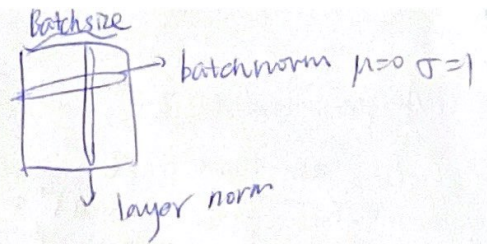 Batchsize
batchnorm μ=0 σ=1
layer norm